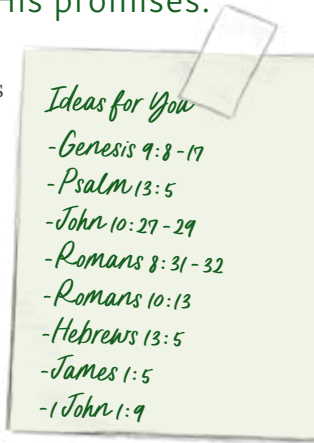 His promises.
s
Ideas for You
-Genesis 9:8-17
-Psalm 13:5
-John 10:27-29
-Romans 8:31-32
-Romans 10:13
-Hebrews 13:5
-James 1:5
-1 John 1:9